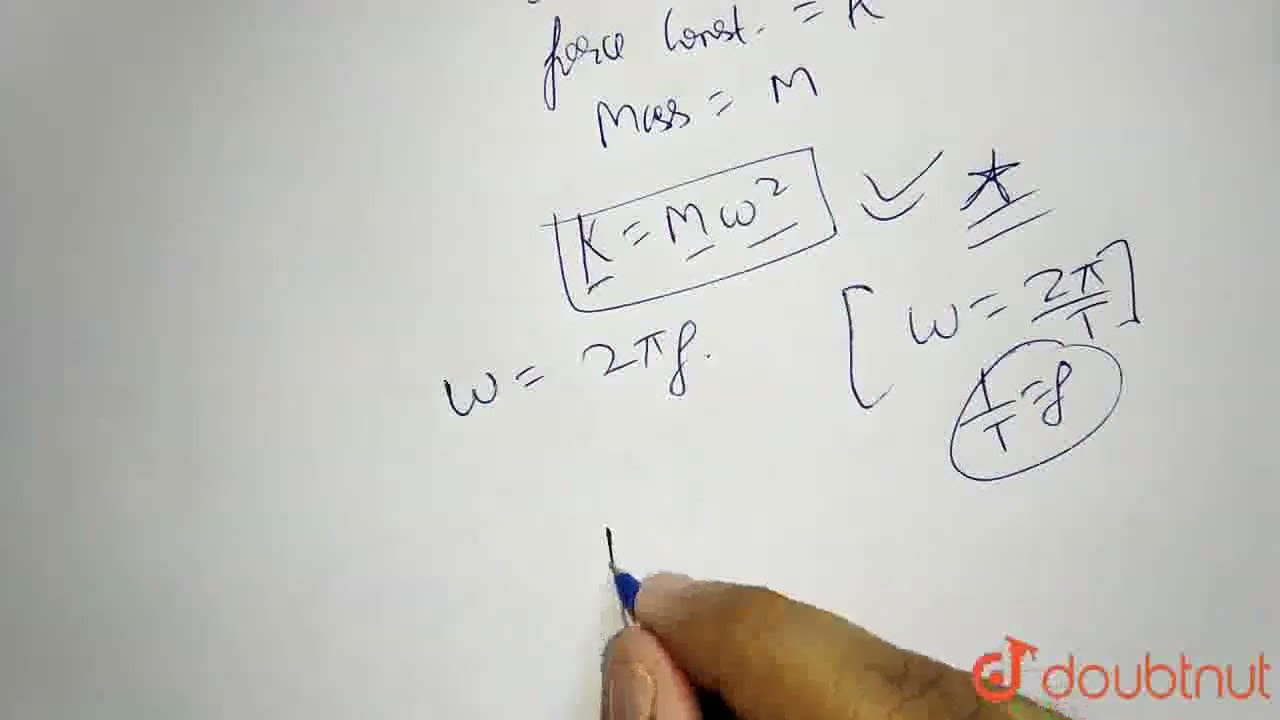 force Const. = K
Mass = M
K = Mω²
ω = 2πf.
[ω = 2π/T]
1/T = f
doubtnut